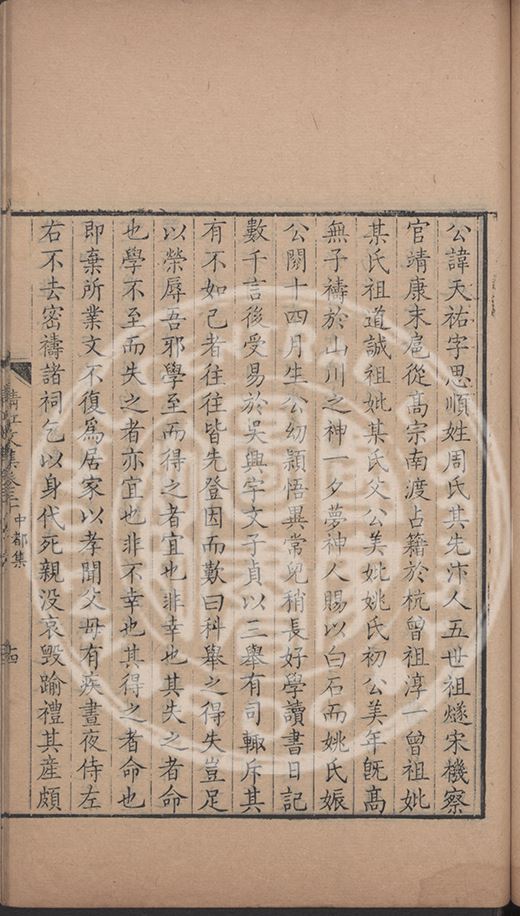 公諱天祐字思順姓周氏其先汴人五世祖燧宋機察
官靖康末扈從髙宗南渡占籍於杭曾祖淳一曾祖妣
某氏祖道誠祖妣某氏父公美妣姚氏初公美年旣髙
無子禱於山川之神一夕夢神人賜以白石而姚氏娠
公閱十四月生公幼穎悟異常兒稍長好學讀書日記
數千言後受易於吳興宇文子貞以三舉有司輙斥其
有不如己者往往皆先登因而歎曰科舉之得失豈足
以榮辱吾邪學至而得之者宜也非幸也其失之者命
也學不至而失之者亦宜也非不幸也其得之者命也
即棄所業文不復爲居家以孝聞父母有疾晝夜侍左
右不去密禱諸祠乞以身代死親没哀毁踰禮其産頗
清江文集卷二 中都集